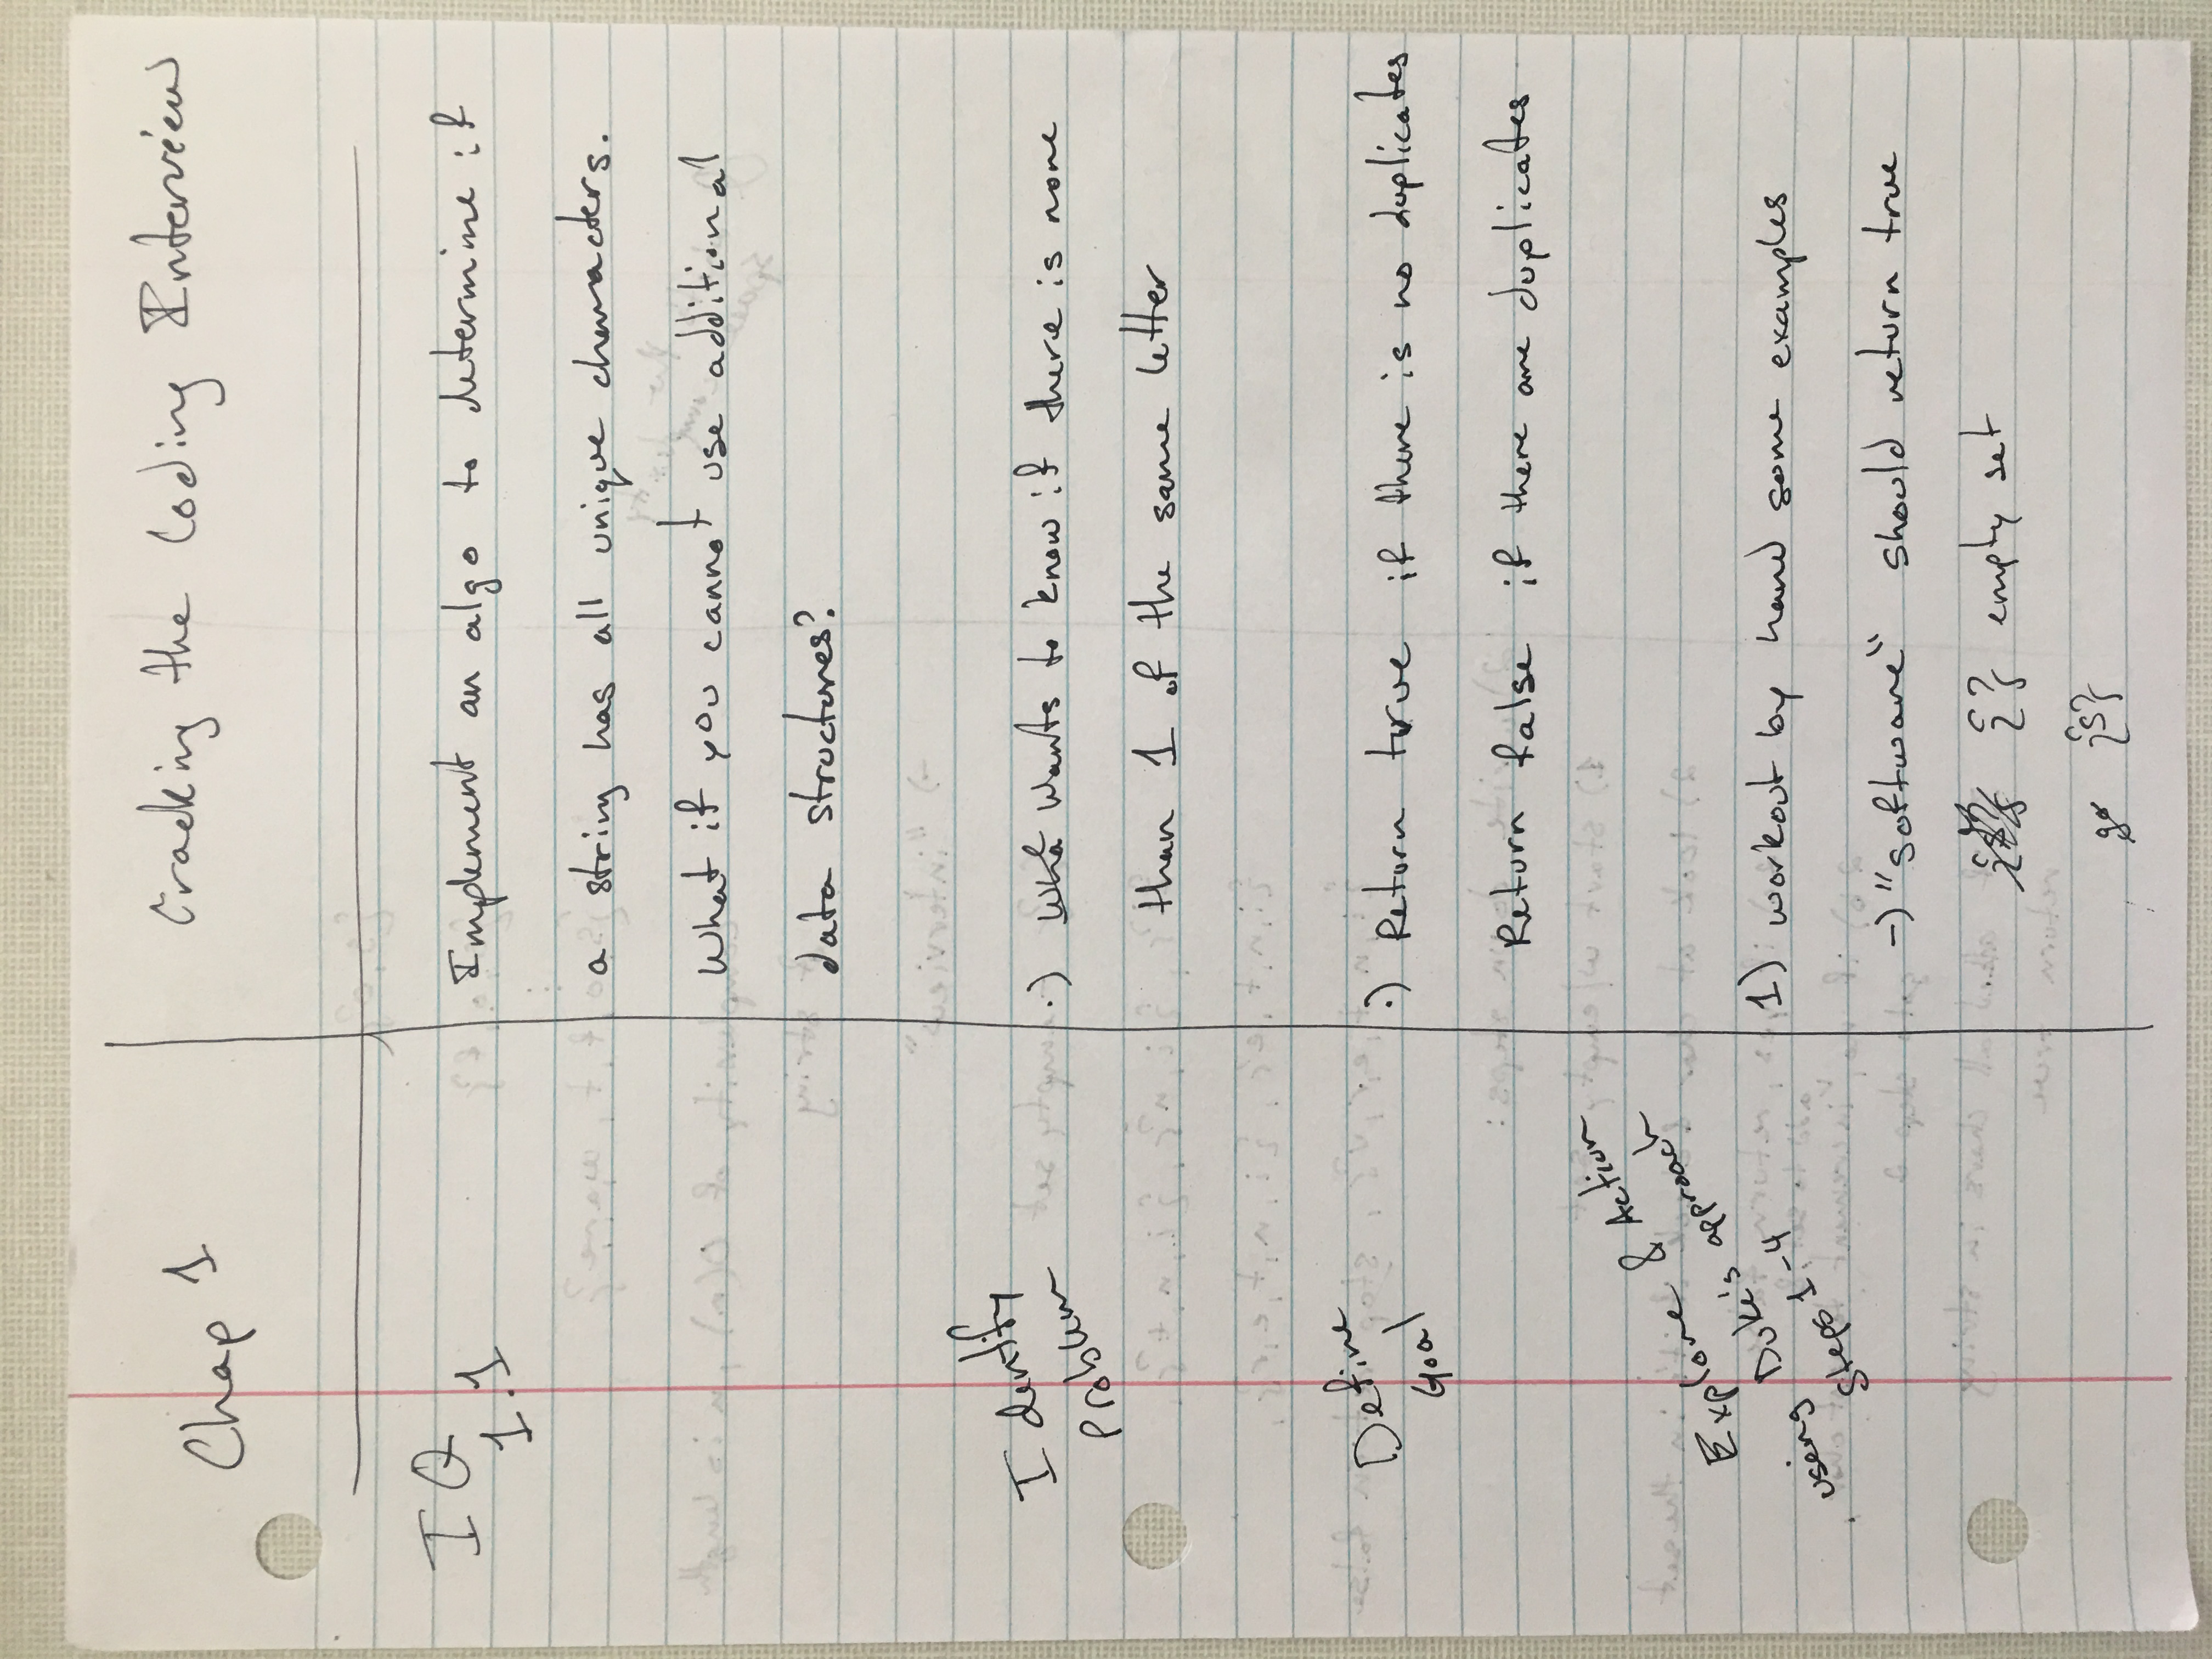 Chap 1
Cracking the Coding Interview
IQ
1.1
Implement an algo to determine if
a string has all unique characters.
What if you cannot use additional
data structures?
Identify
Problem
·) Wants to know if there is none
than 1 of the same letter
Define
Goal
·) Return true if there is no duplicates
Return false if there are duplicates
Explore & Action
using Duke's approach
Steps 1-4
1) workout by hand some examples
-) "software" should return true
{} empty set
{s}